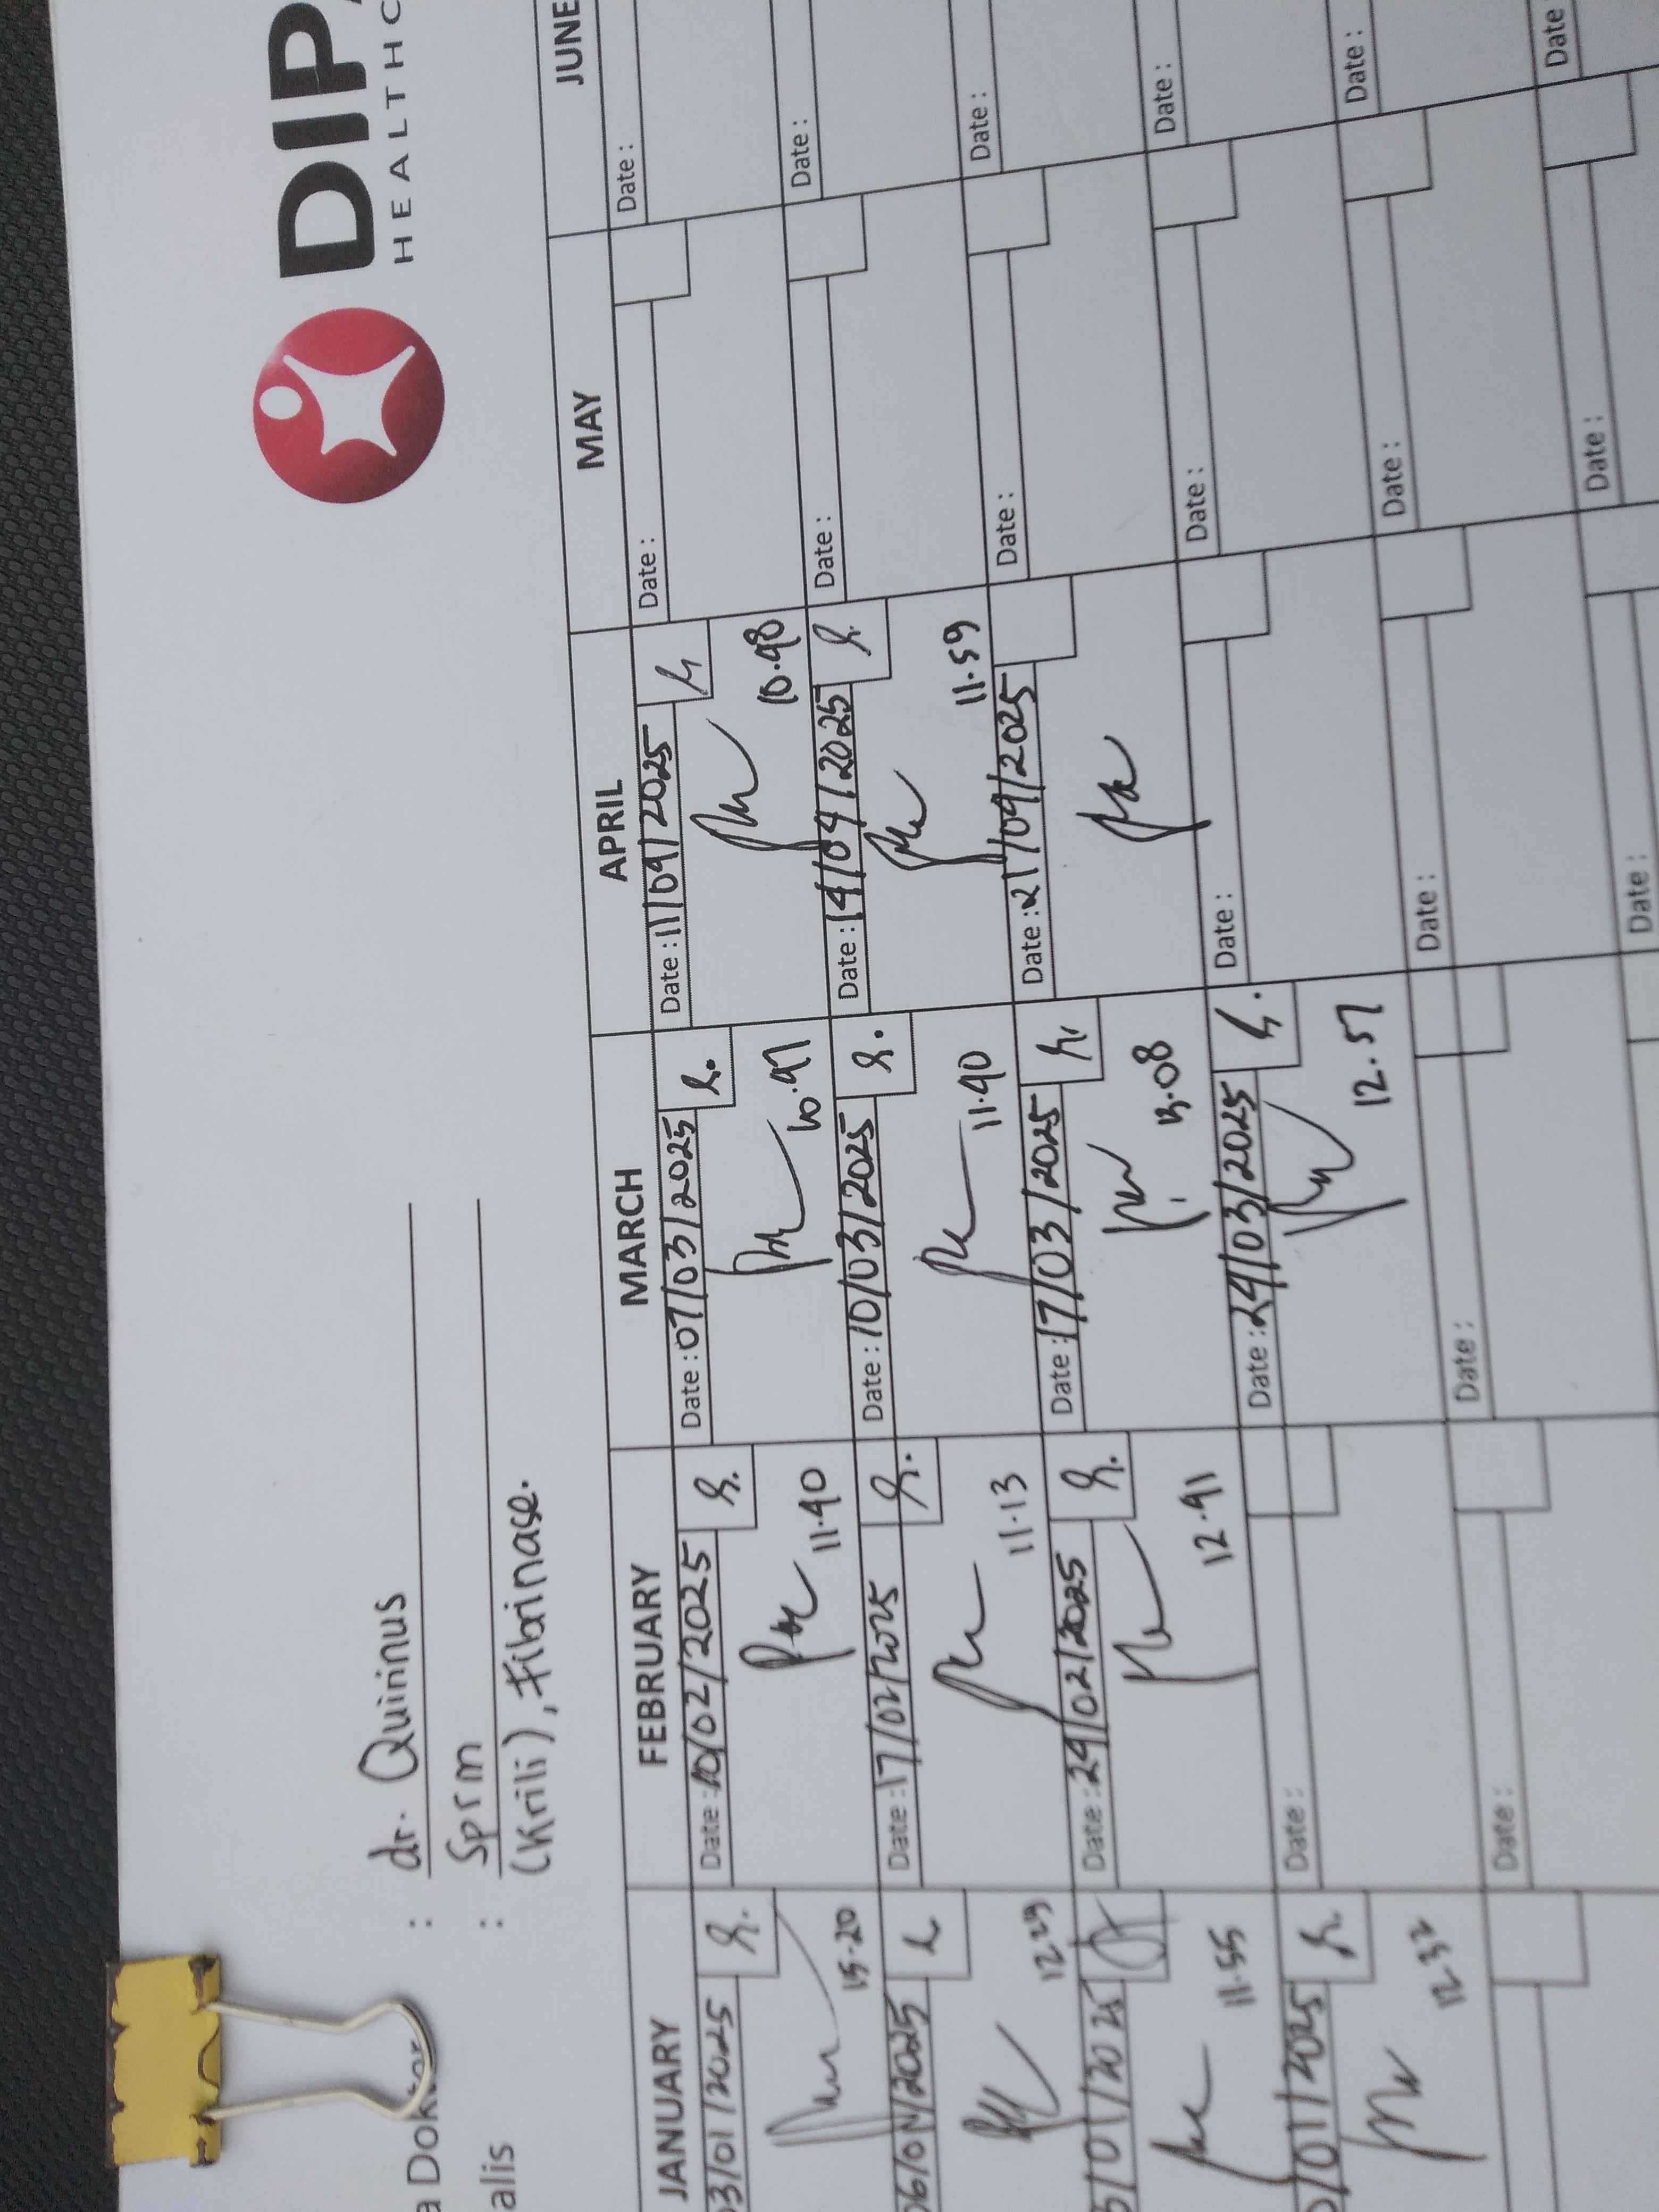 DIPA
HEALTHC
a Dokter : dr. Quirinus
alis : Sprm
(Krili), Fibrinase.
JANUARY FEBRUARY MARCH APRIL MAY JUNE
03/01/2025 Date : 10/02/2025 Date : 07/03/2025 Date : 11/04/2025 Date : Date :
15.20 11.40 10.47 10.48
06/01/2025 Date : 17/02/2025 Date : 10/03/2025 Date : 14/04/2025 Date : Date :
12.29 11.13 11.40 11.59
3/01/2025 Date : 24/02/2025 Date : 17/03/2025 Date : 21/04/2025 Date : Date :
11.55 12.41 13.08
0/01/2025 Date : Date : 24/03/2025 Date : Date : Date :
12.32 12.57
Date : Date : Date : Date : Date :
Date : Date : Date